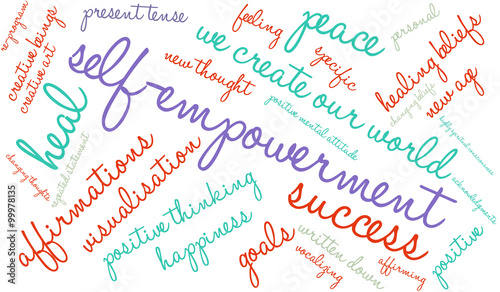 re-program
present tense
feeling
peace
personal
creative beings
creative art
new thought
we create our world
specific
healing beliefs
changing beliefs
new age
self-empowerment
positive mental attitude
heal
changing thought
repeated statement
acknowledgments
affirmations
visualisation
positive thinking
happiness
success
goals
written down
vocalizing
affirming
positive
Adobe Stock | 99978135
Adobe Stock